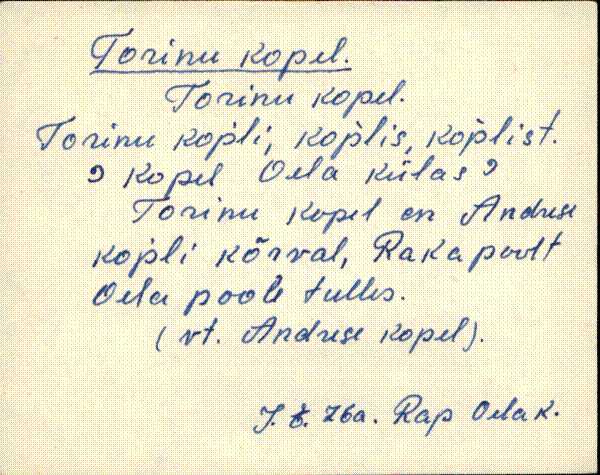 Torinu kopel.
Torinu kopel.
Torinu kop̀li, kop̀lis, kop̀list.
kopel Oela külas
Torinu kopel on Andrese
kop̀li kõrval, Raka poolt
Oela poole tulles.
(vt. Andrese kopel).
76a. Rap Oela k.